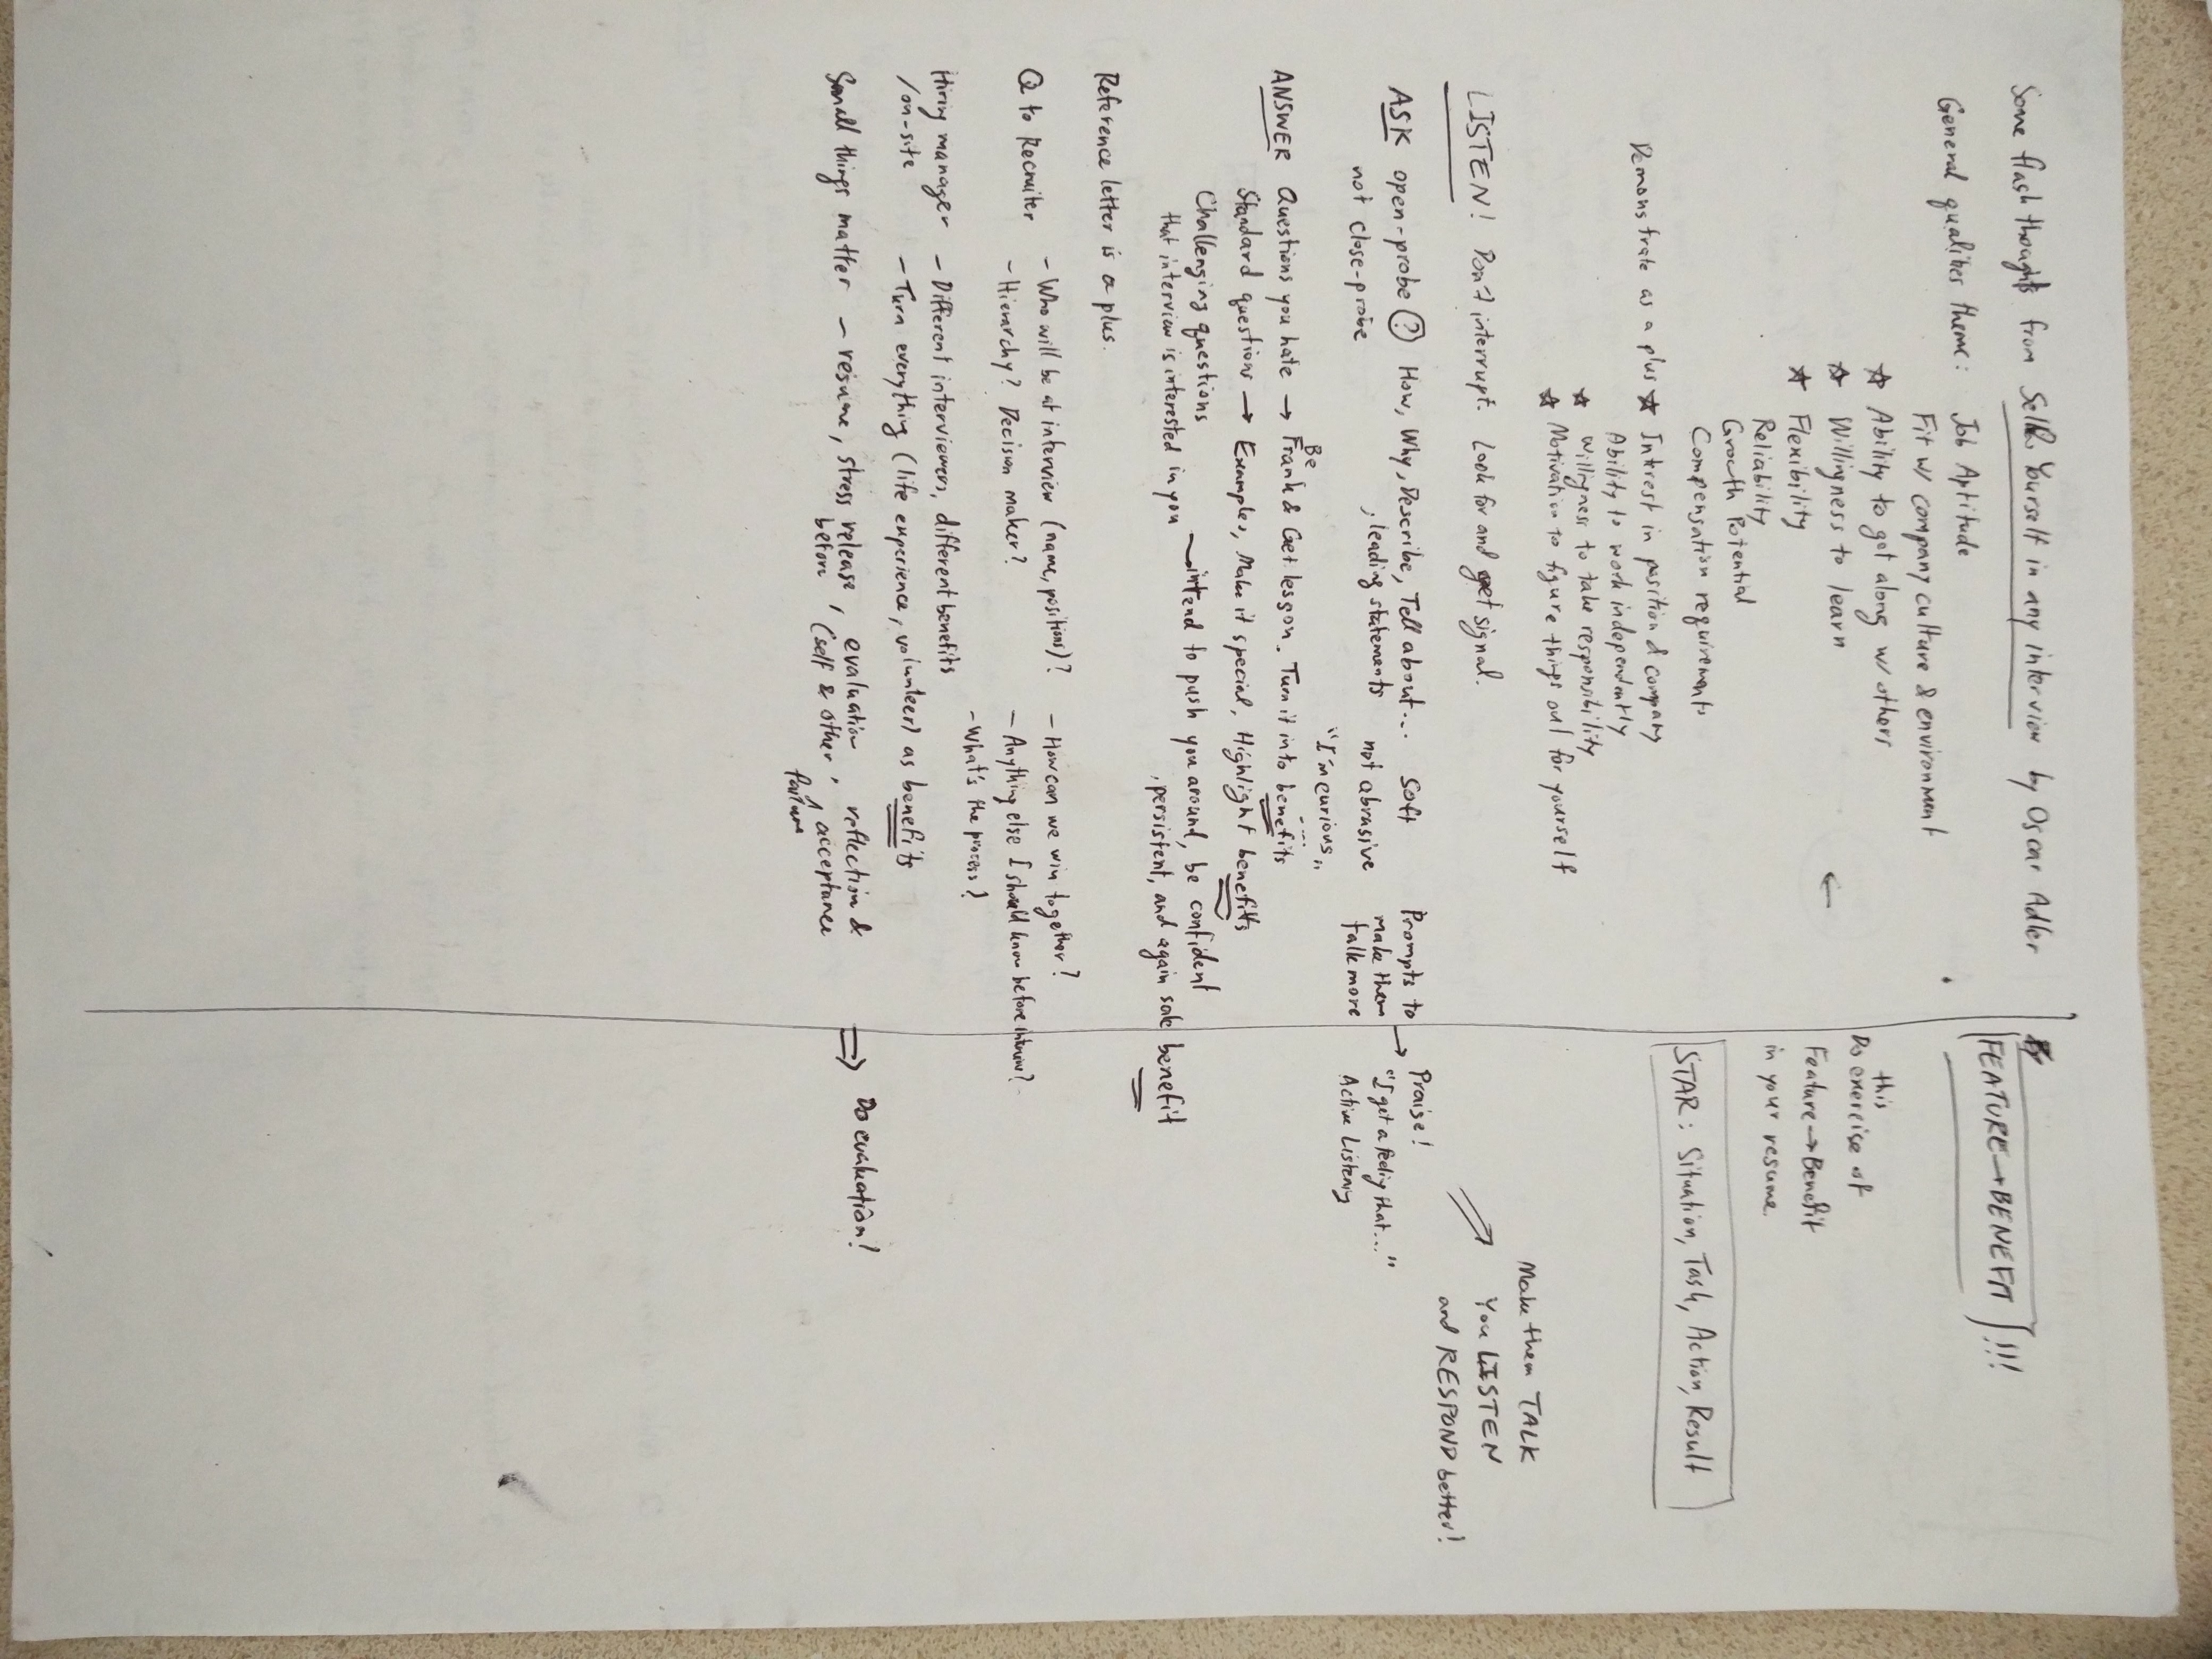 Some flash thoughts from Sell Yourself in any interview by Oscar Adler
General qualities theme: Job Aptitude
Fit w/ company culture & environment
☆ Ability to get along w/ others
☆ Willingness to learn
☆ Flexibility
Reliability
Growth Potential
Compensation requirements
Demonstrate as a plus ☆ Interest in position & company
Ability to work independently
☆ Willigness to take responsibility
☆ Motivation to figure things out for yourself
LISTEN! Don't interrupt. Look for and get signal.
ASK open-probe ? How, Why, Describe, Tell about...
, leading statements
not close-probe
Soft
not abrasive
"I'm curious"
....
Prompts to
make them
talk more
→ Praise!
"I get a feeling that..."
Active Listening
ANSWER Questions you hate → Be Frank & Get lesson. Turn it into benefits
Standard questions → Examples, Make it special, Highlight benefits
Challenging questions
that interview is interested in you
intend to push you around, be confident
, persistent, and again sale benefit
Reference letter is a plus.
Q to Recruiter
- Who will be at interview (name, positions)?
- Hierarchy? Decision maker?
- How can we win together?
- Anything else I should know before interview?
- What's the process?
Hiring manager
/on-site
- Different interviewers, different benefits
- Turn everything (life experience, volunteer) as benefits
Small things matter – resume, stress release before, evaluation (self & other, failure reflection & acceptance
⇒ Do evaluation!
[FEATURE→BENEFIT]!!!
←
Do this exercise of
Feature → Benefit
in your resume.
STAR: Situation, Task, Action, Result
Make them TALK
You LISTEN
and RESPOND better!